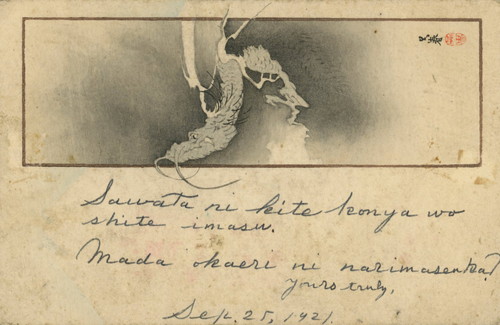 Sawata ni kite konya wo
shite imasu.
Mada okaeri ni narimasenka?
yours truly,
Sep. 25, 1921.